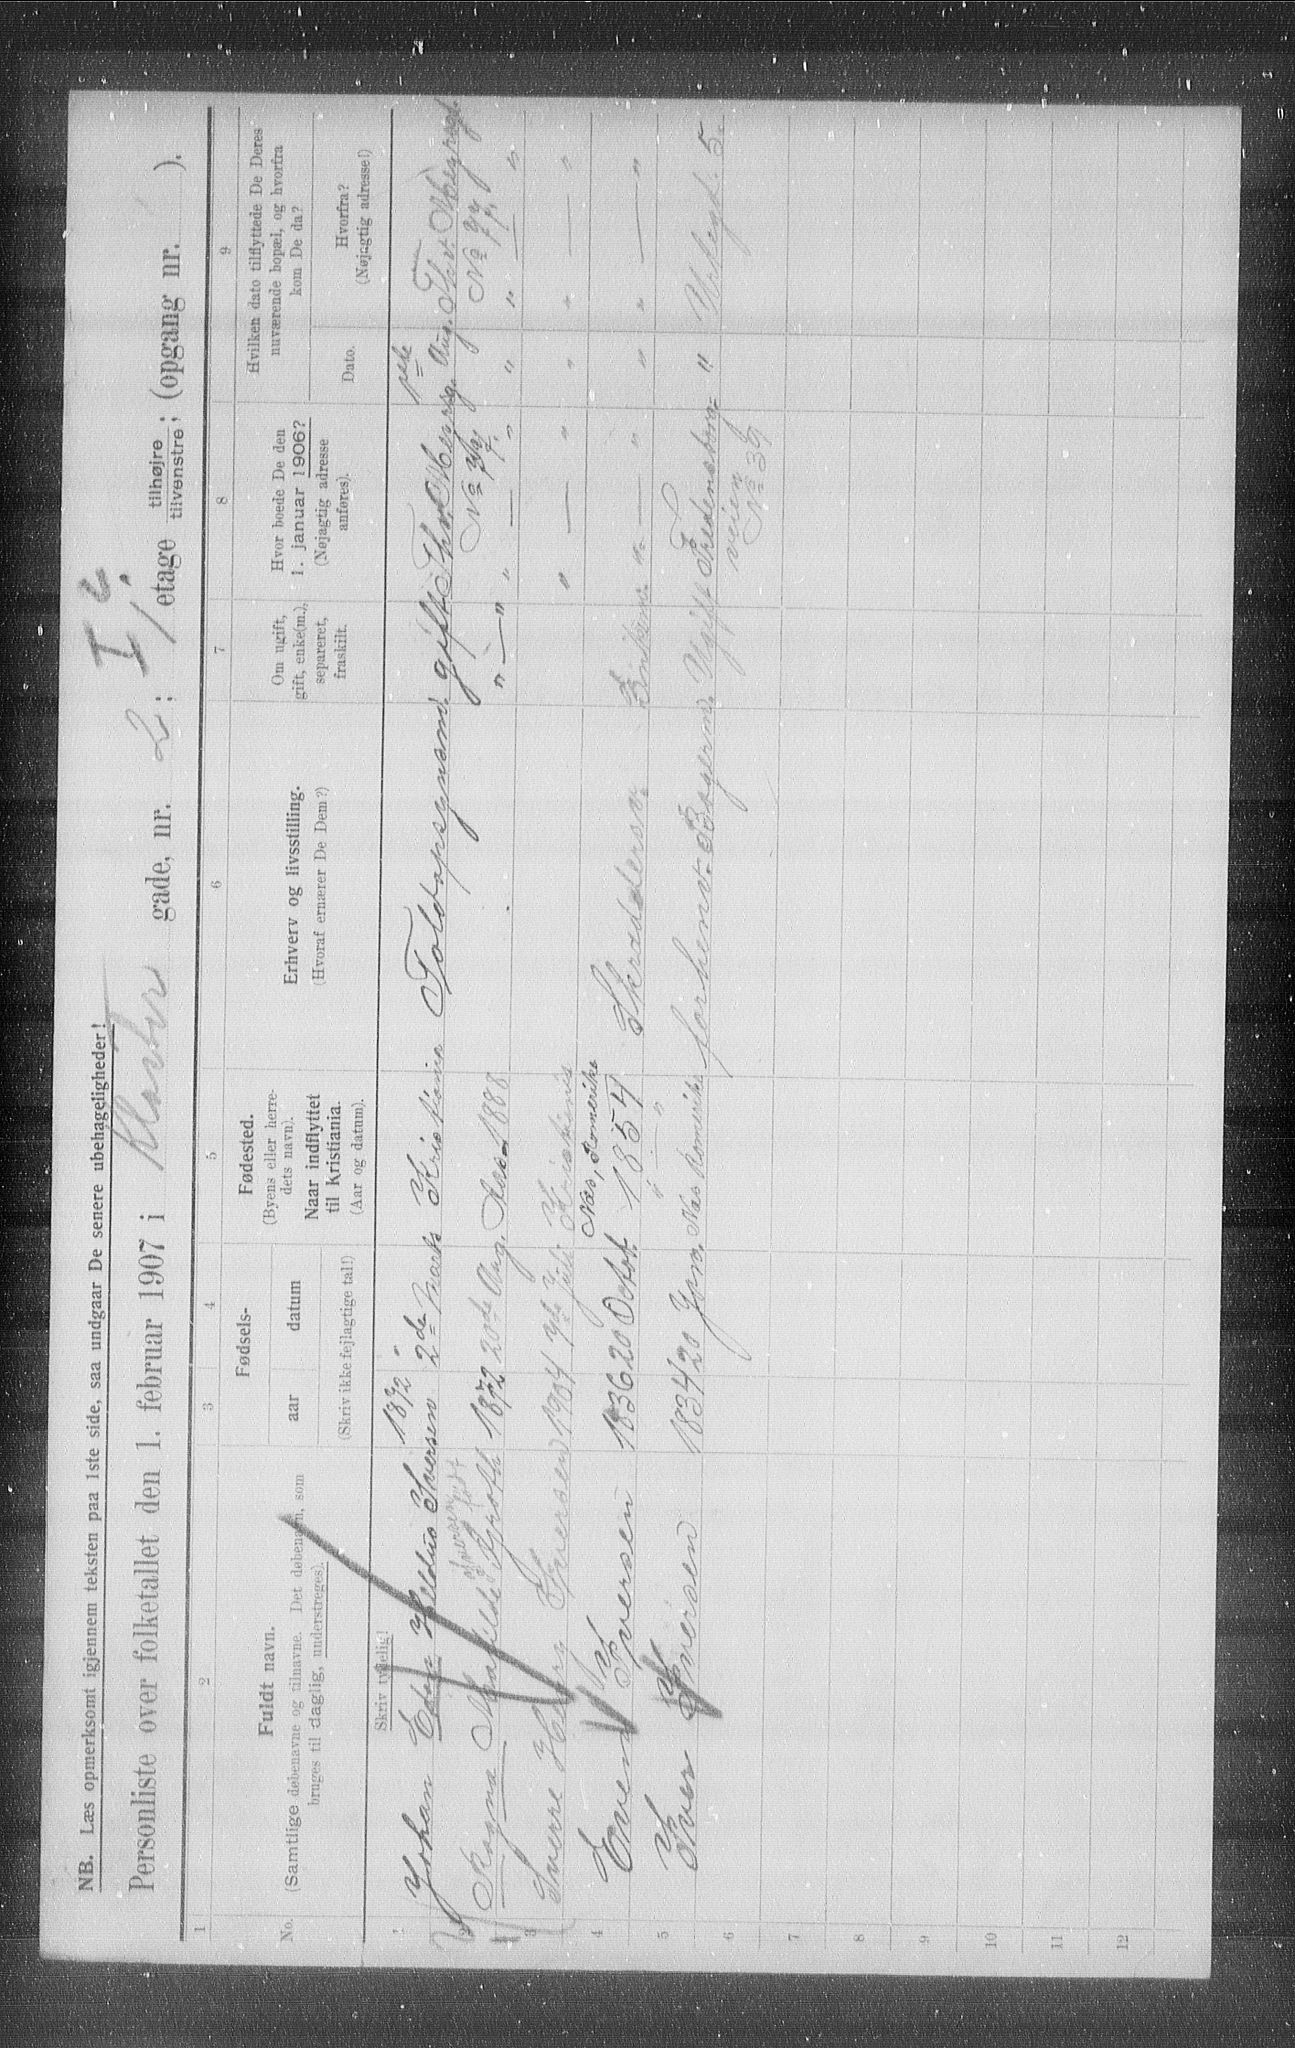 NB. Læs opmerksomt igjennem teksten paa 1ste side, saa undgaar De senere ubehageligheder!
Personliste over folketallet den 1. februar 1907 i Kloster gade, nr. 2; I, 2. etage tilhøjre tilvenstre; (opgang nr. ).
1 2 3 4 5 6 7 8 9
No.
Fuldt navn.
(Samtlige døbenavne og tilnavne. Det døbenavn, som
bruges til daglig, understreges).
Skriv tydelig!
Fødsels-
aar datum
(Skriv ikke fejlagtige tal!)
Fødested.
(Byens eller herre-
dets navn).
Naar indflyttet
til Kristiania.
(Aar og datum).
Erhverv og livsstilling.
(Hvoraf ernærer De Dem?)
Om ugift,
gift, enke(m.),
separeret,
fraskilt.
Hvor boede De den
1. januar 1906?
(Nøjagtig adresse
anføres).
Hvilken dato tilflyttede De Deres
nuværende bopæl, og hvorfra
kom De da?
Dato.
Hvorfra?
(Nøjagtig adresse!)
1 Johan Iversen 1872 2de Marts Kristiania Toldopsynsmand gift Thv. Meyersg. No 77 Aug. Thv. Meyersgd. No 77
2 Magna Mathilde Iversen født Groth 1872 20de Aug. 1888 " — " " — " " " — "
3 Sverre Iversen 1904 Juli Kristiania " — " " " — "
4 Even Iversen 1836 20 Octob. Næs, Romerike 1854 Skrædersv. Enkem. " — " " " — "
5 Iver Iversen 1834 20 Næs Romerike " — " forhenv. Ugift Fredensborg- veien No 39 " Urtegd. 5.
6
7
8
9
10
11
12